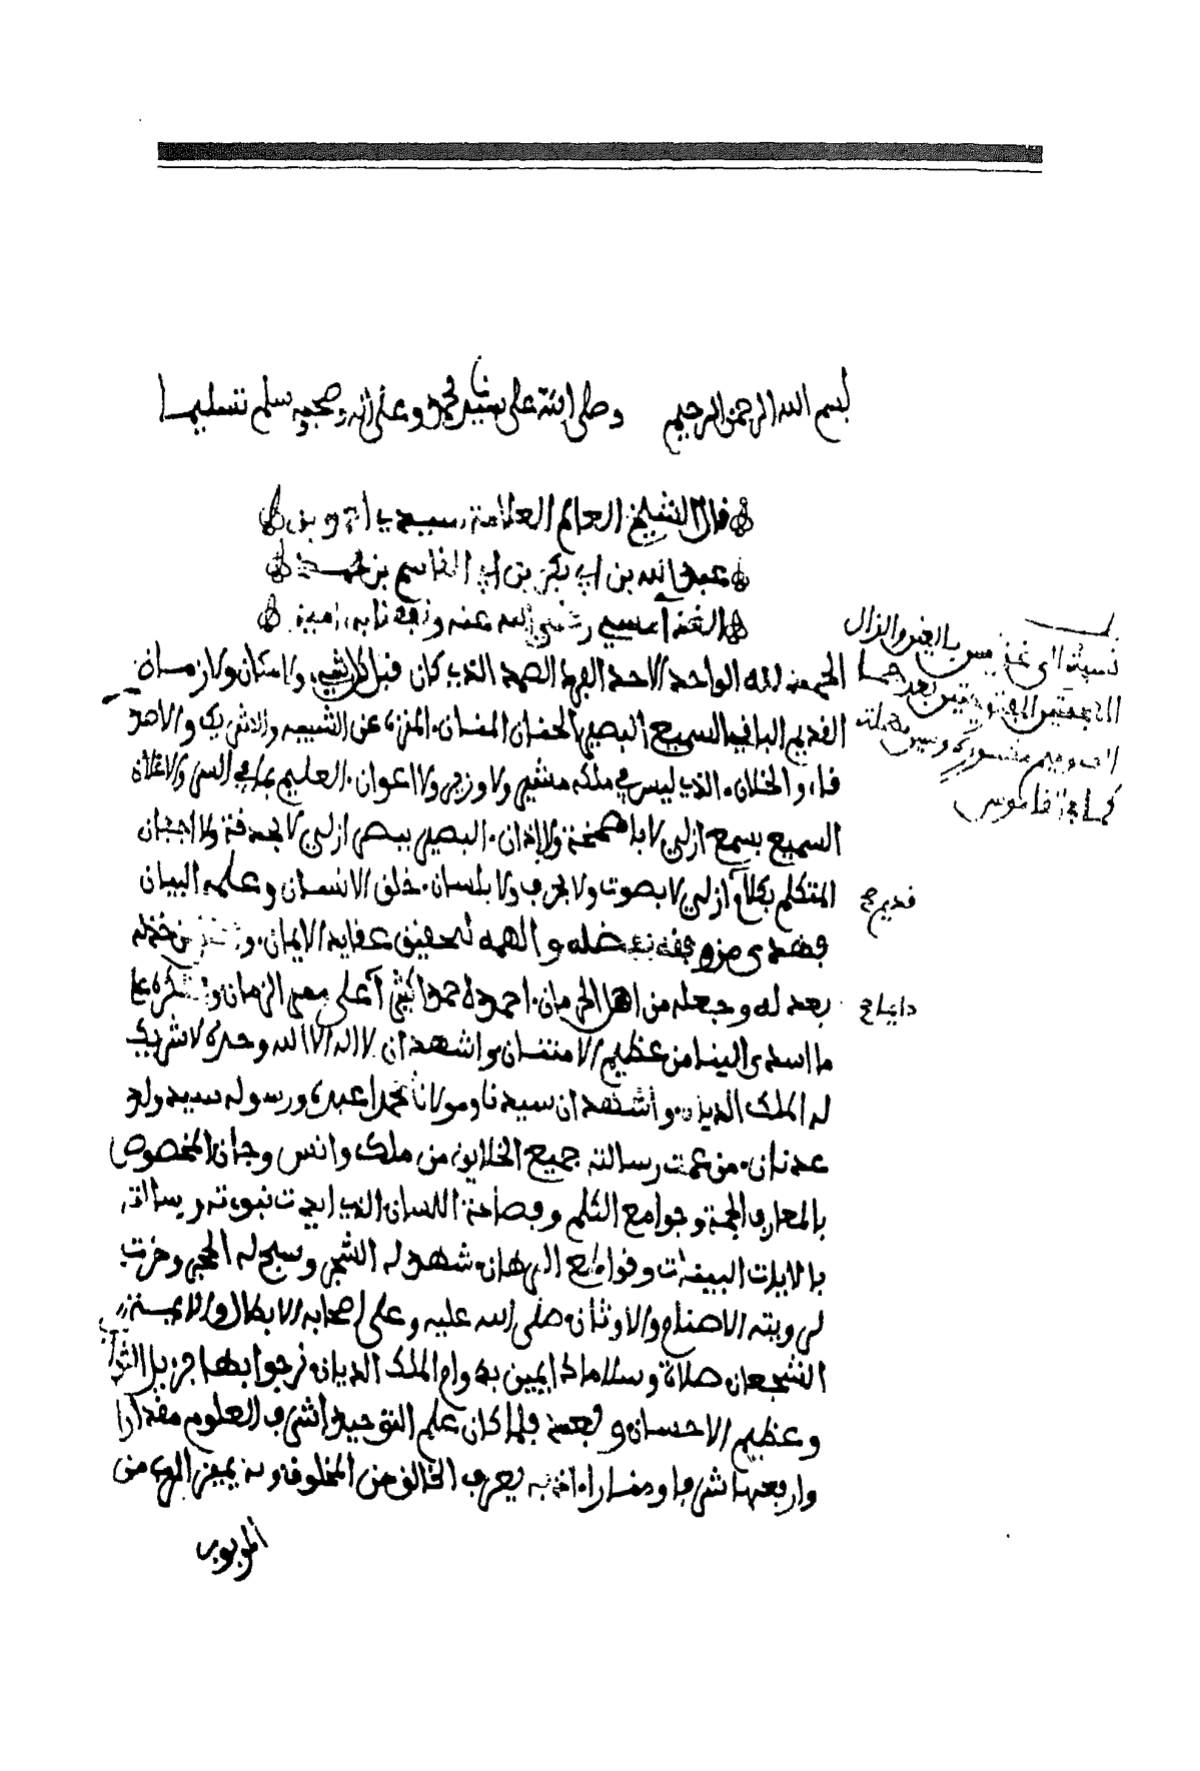 بسم الله الرحمن الرحيم وصلى الله على سيدنا محمد وعلى اله وصحبه وسلم تسليما
قال الشيخ العالم العلامة سيدي احمد بن
عبد الله بن ابي بكر بن ابي القاسم بن محمد
الغدامسي رضي الله عنه ونفعنا به امين
الحمد لله الواحد الاحد الفرد الصمد الذي كان قبل كل شيء ولا مكان ولا زمان
القديم الباقي السميع البصير الحنان المنان المنزه عن الشبيه والشريك والاصد
قاء والخلان الذي ليس في ملكه مشير ولا وزير ولا اعوان العليم بما في السر والاعلان
السميع بسمع ازلي لا باصمخة ولا اذان البصير ببصر ازلي لا بحدقة ولا اجفان
المتكلم بكلام ازلي لا بصوت ولا بحرف ولا بلسان خلق الانسان وعلمه البيان
فهدى من وفقه بفضله والهمه لتحقيق عقايد الايمان من خذله
بعدله وجعله من اهل الحرمان احمده حمدا كثيرا على ممر الزمان واشكره على
ما اسدى الينا من عظيم الامتنان واشهد ان لا اله الا الله وحده لا شريك
له الملك الديان واشهد ان سيدنا ومولانا محمدا عبده ورسوله سيد ولد
عدنان من عمت رسالته جميع الخلايق من ملك وانس وجان المخصوص
بالمعارف الجمة وجوامع الكلم وفصاحة اللسان الذي ايدت نبوءته ورسالته
بالايات البينات وقواطع البرهان شهد له الشجر وسبح له الحجر وخرت
لرويته الاصنام والاوثان صلى الله عليه وعلى اصحابه الابطال والايمة
الشجعان صلاة وسلاما دايمين بدوام الملك الديان نرجوا بهما جزيل الثواب
وعظيم الاحسان وبعد فلما كان علم التوحيد اشرف العلوم مقدارا
وارفعها شرفا ومنارا اذ به يعرف الخالق من المخلوق وبه يميز الرب من
المربوب
نسبة الى غدامس بالغين والذال
المعجمتين المفتوحتين بعدهما
الف وميم مكسورة وسين مهملة
كما في القاموس
قديم صح
دايما صح